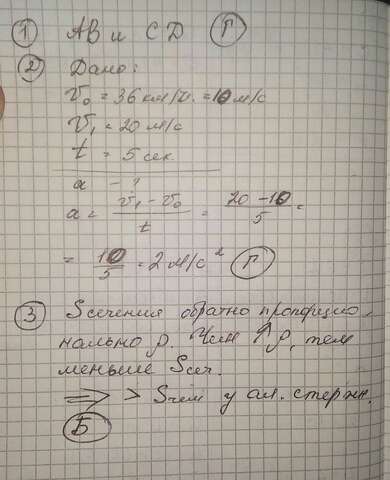 ① АВ и СD Г
② Дано:
V₀ = 36 км/ч. = 10 м/с
V₁ = 20 м/с
t = 5 сек
a - ?
a = V₁ - V₀ / t = 20 - 10 / 5 =
= 10 / 5 = 2 м/с² Г
③ Sсечения обратно пропорцио
нально ρ. Чем ↑ρ, тем
меньше Sсеч.
⇒ > S чем у ал. стержн.
Б